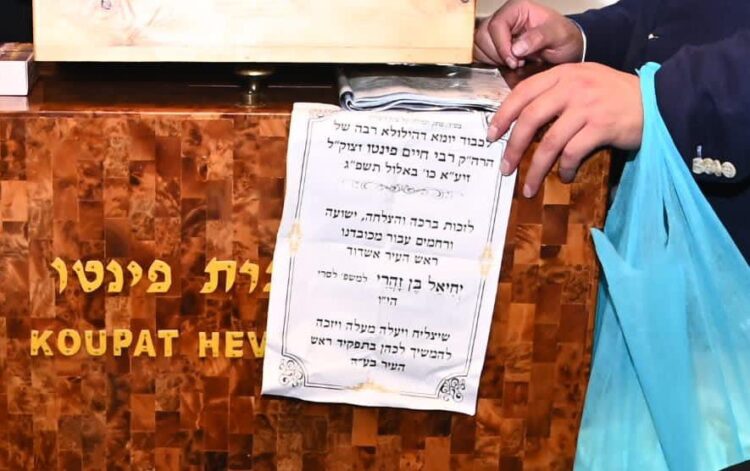 לכבוד יומא דהילולא רבה של
הרה"ק רבי חיים פינטו זצוק"ל
זיע"א כו' באלול תשפ"ג
לזכות ברכה והצלחה, ישועה
ורחמים עבור מכובדנו
ראש העיר אשדוד
יְחִיאֵל בֶּן זָהֳרִי למשפ' לסרי
הי"ו
שיצליח ויעלה מעלה ויזכה
להמשיך לכהן בתפקיד ראש
העיר בע"ה
ות פינטו
KOUPAT HEV